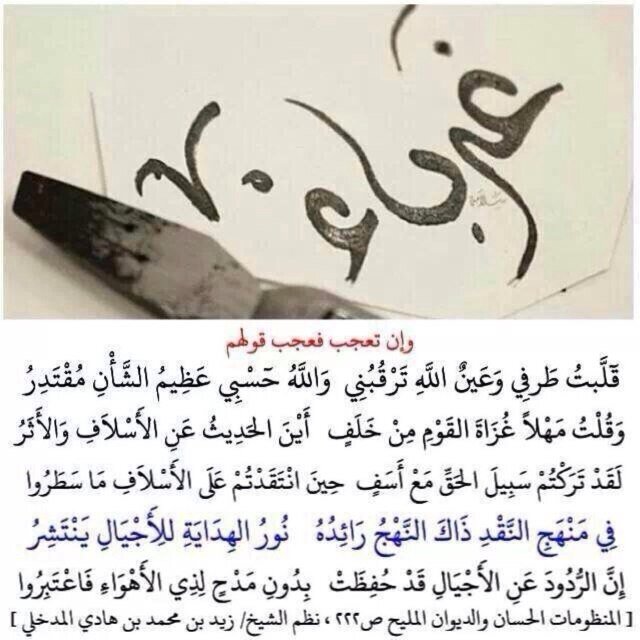 غرباء
وإن تعجب فعجب قولهم
قَلَّبتُ طَرفِي وَعَينُ اللَّهِ تَرْقُبُنِي وَاللَّهُ حَسْبِي عَظِيمُ الشَّأْنِ مُقْتَدِرُ
وَقُلْتُ مَهْلاً غُزَاةَ القَوْمِ مِنْ خَلَفٍ أَيْنَ الحَدِيثُ عَنِ الأَسْلاَفِ وَالأَثَرُ
لَقَدْ تَرَكْتُمْ سَبِيلَ الحَقِّ مَعْ أَسَفٍ حِينَ انْتَقَدْتُمْ عَلَى الأَسْلاَفِ مَا سَطَرُوا
فِي مَنْهَجِ النَّقْدِ ذَاكَ النَّهْجُ رَائِدُهُ نُورُ الهِدَايَةِ للأَجْيَالِ يَنْتَشِرُ
إِنَّ الرُّدُودَ عَنِ الأَجْيَالِ قَدْ حُفِظَتْ بِدُونِ مَدْحٍ لِذِي الأَهْوَاءِ فَاعْتَبِرُوا
[ المنظومات الحسان والديوان المليح ص٢٢٢ ، نظم الشيخ/ زيد بن محمد بن هادي المدخلي ]